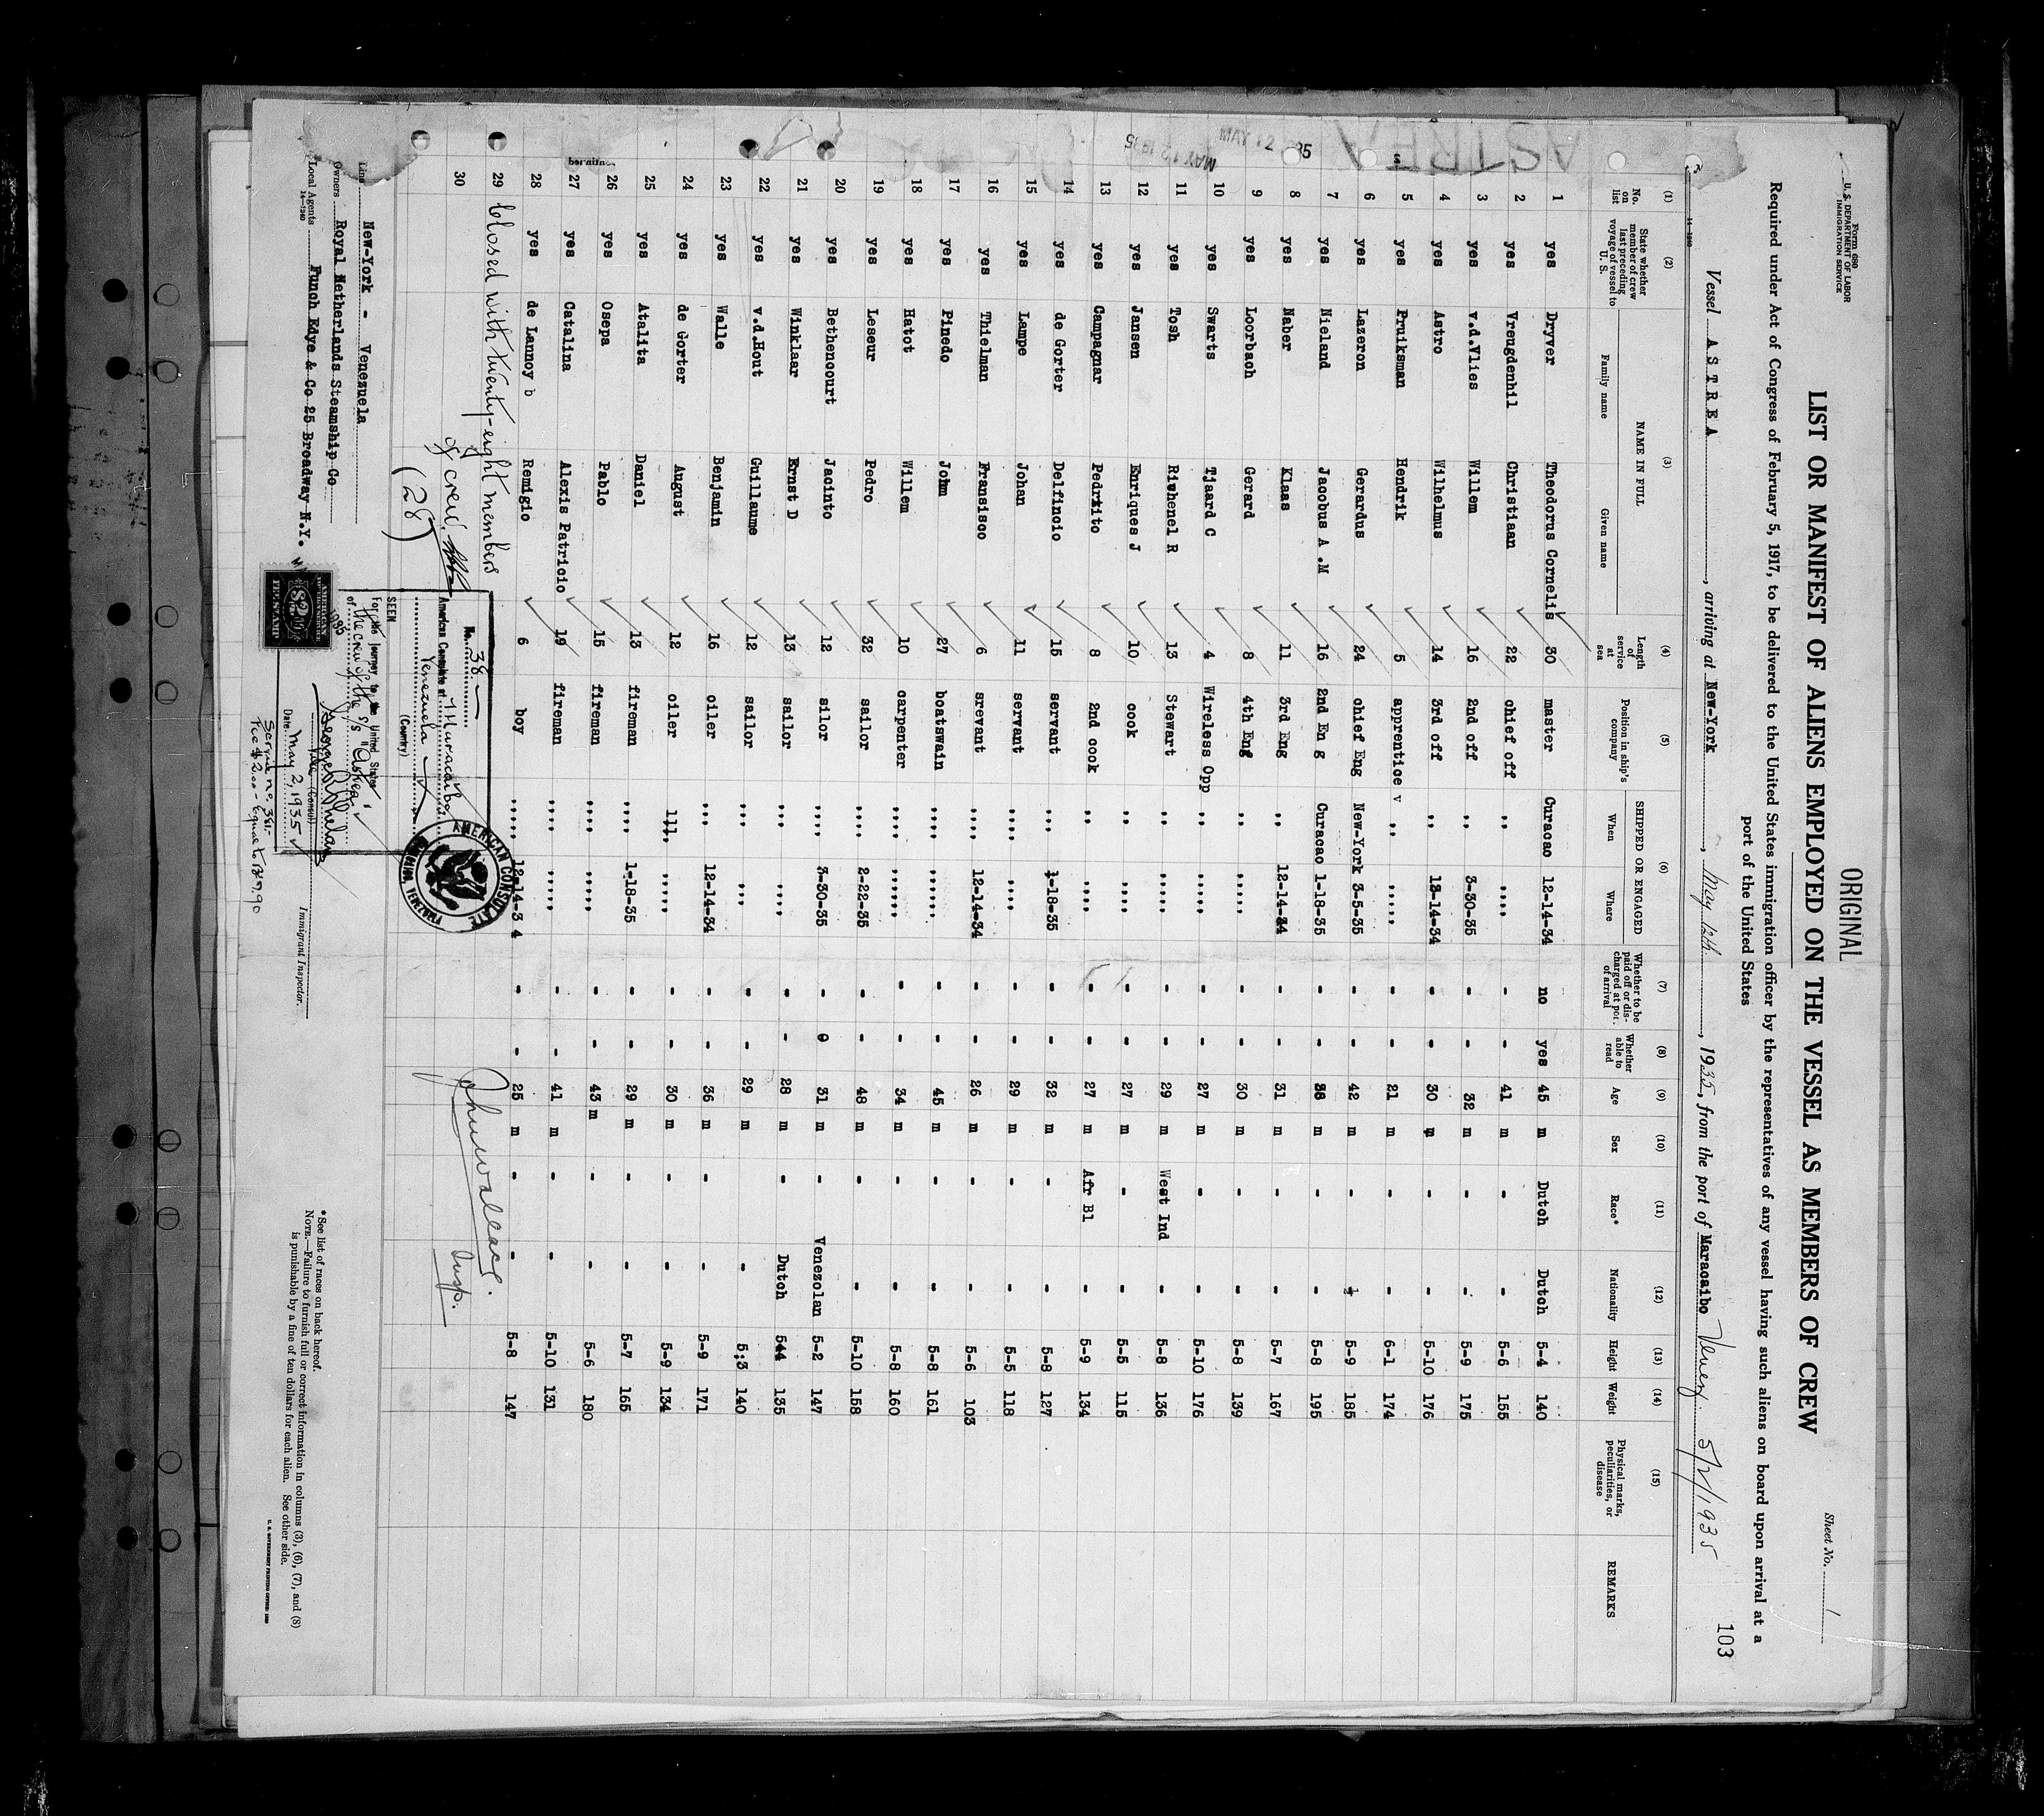 Form 680
U. S. DEPARTMENT OF LABOR
IMMIGRATION SERVICE
ORIGINAL
Sheet No. 1
LIST OR MANIFEST OF ALIENS EMPLOYED ON THE VESSEL AS MEMBERS OF CREW
103
Required under Act of Congress of February 5, 1917, to be delivered to the United States immigration officer by the representatives of any vessel having such aliens on board upon arrival at a
port of the United States
Vessel ASTREA, arriving at New-York, May 12th, 1935, from the port of Maracaibo Venez 5/2/1935
14-1240
ASTREA
MAY 12
MAY 12 1935
(1) (2) (3) (4) (5) (6) (7) (8) (9) (10) (11) (12) (13) (14) (15)
No. on list
State whether member of crew last preceding voyage of vessel to U. S.
NAME IN FULL
Family name Given name
Length of service at sea
Position in ship's company
SHIPPED OR ENGAGED
When Where
Whether to be paid off or discharged at port of arrival
Whether able to read
Age
Sex
Race*
Nationality
Height
Weight
Physical marks, peculiarities, or disease
REMARKS
1 yes Dryver Theodorus Cornelis 30 master Curacao 12-14-34 no yes 45 m Dutch Dutch 5-4 140
2 yes Vreugdenhil Christiaan 22 chief off ,, ,,,, - - 41 m - - 5-6 155
3 yes v.d.Vlies Willem 16 2nd off ,, 3-30-35 - - 32 m - - 5-9 175
4 yes Astro Wilhelmus 14 3rd off ,, 12-14-34 - - 30 m - - 5-10 176
5 yes Pruiksman Hendrik 5 apprentice v ,, ,,,,, - - 21 m - - 6-1 174
6 yes Lazeron Gerardus 24 chief Eng New-York 3-5-35 - - 42 m - - 5-9 185
7 yes Nieland Jacobus A .M 16 2nd En g Curacao 1-18-35 - - 38 m - - 5-8 195
8 yes Naber Klaas 11 3rd Eng ,, 12-14-34 - - 31 m - - 5-7 167
9 yes Loorbach Gerard 8 4th Eng ,, ,,,,, - - 30 m - - 5-8 139
10 yes Swarts Tjaard C 4 Wireless Opp ,, ,,,,, - - 27 m - - 5-10 176
11 yes Tosh Richenel R 13 Stewart ,, ,,,,, - - 29 m West Ind - 5-8 136
12 yes Jansen Enriques J 10 cook ,, ,,,, - - 27 m - - 5-5 115
13 yes Campagnar Pedrito 8 2nd cook ,, ,,,, - - 27 m Afr Bl - 5-9 134
14 yes de Gorter Delfincio 15 servant ,,, 1-18-35 - - 32 m - - 5-8 127
15 yes Lampe Johan 11 servant ,,,, ,,,, - - 29 m - - 5-5 118
16 yes Thielman Fransisco 6 srevant ,,, 12-14-34 - - 26 m - - 5-6 103
17 yes Pinedo Johm 27 boatswain ,,,, ,,,,,, - - 45 m - - 5-8 161
18 yes Hatot Willem 10 carpenter ,,,, ,,,,,, - - 34 m - - 5-8 160
19 yes Leseur Pedro 32 sailor ,,,, 2-22-35 - - 48 m - - 5-10 158
20 yes Bethencourt Jacinto 12 silor ,,,, 3-30-35 - 0 31 m - Venezolan 5-2 147
21 yes Winklaar Ernst D 13 sailor ,,, ,,,, - - 28 m - Dutch 544 135
22 yes v.d.Hout Guillaume 12 sailor ,,, ,,, - - 29 m - 5;3 140
23 yes Walle Benjamin 16 oiler ,,, 12-14-34 - - 36 m - - 5-9 171
24 yes de Gorter August 12 oiler ,,,, ,,,,, - - 30 m - - 5-9 134
25 yes Atalita Daniel 13 fireman ,,,, 1-18-35 - - 29 m - - 5-7 165
26 yes Osepa Pablo 15 fireman ,,,, ,,,,, - - 43 m - - 5-6 180
27 yes Catalina Alexis Patricio 19 fireman ,,,, ,,,,, - - 41 m - - 5-10 131
28 yes de Lannoy b Remigio 6 boy ,,,,, 12-14-3 4 - - 25 m - - 5-8 147
29 Closed with twenty-eight members
30 of crew.
(28)
John Wallace.
Insp.
No. 38
American Consulate at Maracaibo,
Venezuela
(Country)
SEEN
For the journey to the United States
of the crew of the s/s "Astrea"
(Consul)
Date May 2, 1935
Service no. 381-
Fee $2.00 - Equal to Bs 7.90
AMERICAN CONSULATE
AMERICAN
FEE STAMP
$2
Line New-York - Venezuela
Owners Royal Netherlands Steamship Co
Local Agents Funch Edye & Co 25 Broadway N.Y.
14-1240
Immigrant Inspector.
*See list of races on back hereof.
NOTE.—Failure to furnish full or correct information in columns (3), (6), (7), and (8)
is punishable by a fine of ten dollars for each alien. See other side.